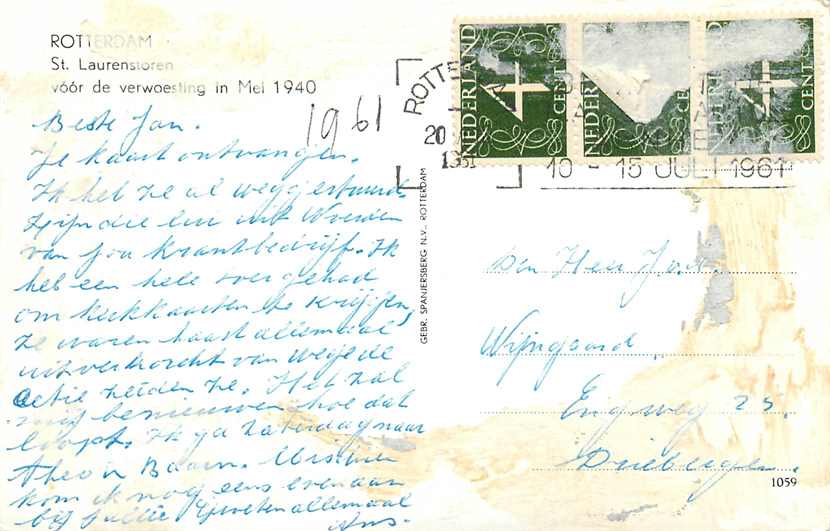 ROTTERDAM
St. Laurenstoren
vóór de verwoesting in Mei 1940
1961
Beste Jan.
Je kaart ontvangen.
Ik heb ze al weggestuurd
Zijn die lui uit Woerden
van jou krantbedrijf. Ik
heb een hele toer gehad
om kerkkaarten te krijgen,
ze waren haast allemaal
uitverkocht van wege de
actie zeiden ze. Het zal
mij benieuwen hoe dat
loopt. Ik ga Zaterdag naar
Theo in Baarn. Misschien
kom ik nog eens even aan
bij jullie Groeten allemaal
GEBR. SPANJERSBERG N.V., ROTTERDAM
NEDERLAND 4 CENT
NEDERLAND CENT
NEDERLAND 4 CENT
ROTTERDAM
20
1961
10 - 15 JULI 1961
Den Heer
Wijngaard
Engweg 25.
Driebergen.
1059